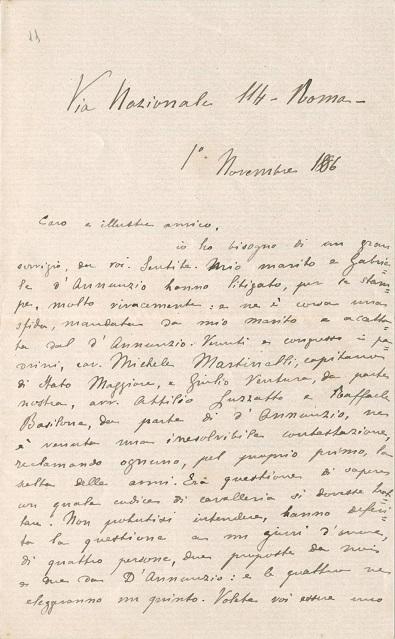 11
Via Nazionale 114 - Roma -
1° Novembre 1886
Caro e illustre amico,
io ho bisogno di un gran
servizio, da voi. Sentite. Mio marito e Gabrie-
le d'Annunzio hanno litigato, per le stam-
pe, molto vivacemente: e ne è corsa una
sfida, mandata da mio marito e accetta-
ta dal d'Annunzio. Venuti a congresso i pa-
drini, cav. Michele Martinelli, capitano
di Stato Maggiore, e Giulio Ventura, da parte
nostra, avv. Attilio Luzzatto e Raffaele
Basilone, da parte di d'Annunzio, ne
è venuta una irresolvibile contestazione,
reclamando ognuno, pel proprio primo, la
scelta delle armi. Era questione di sapere
con quale codice di cavalleria si dovesse trat-
tare. Non potutisi intendere, hanno deferi-
ta la questione a un giurì d'onore,
di quattro persone, due proposte da noi
e due da D'Annunzio: e le quattro ne
eleggeranno un quinto. Volete voi essere uno